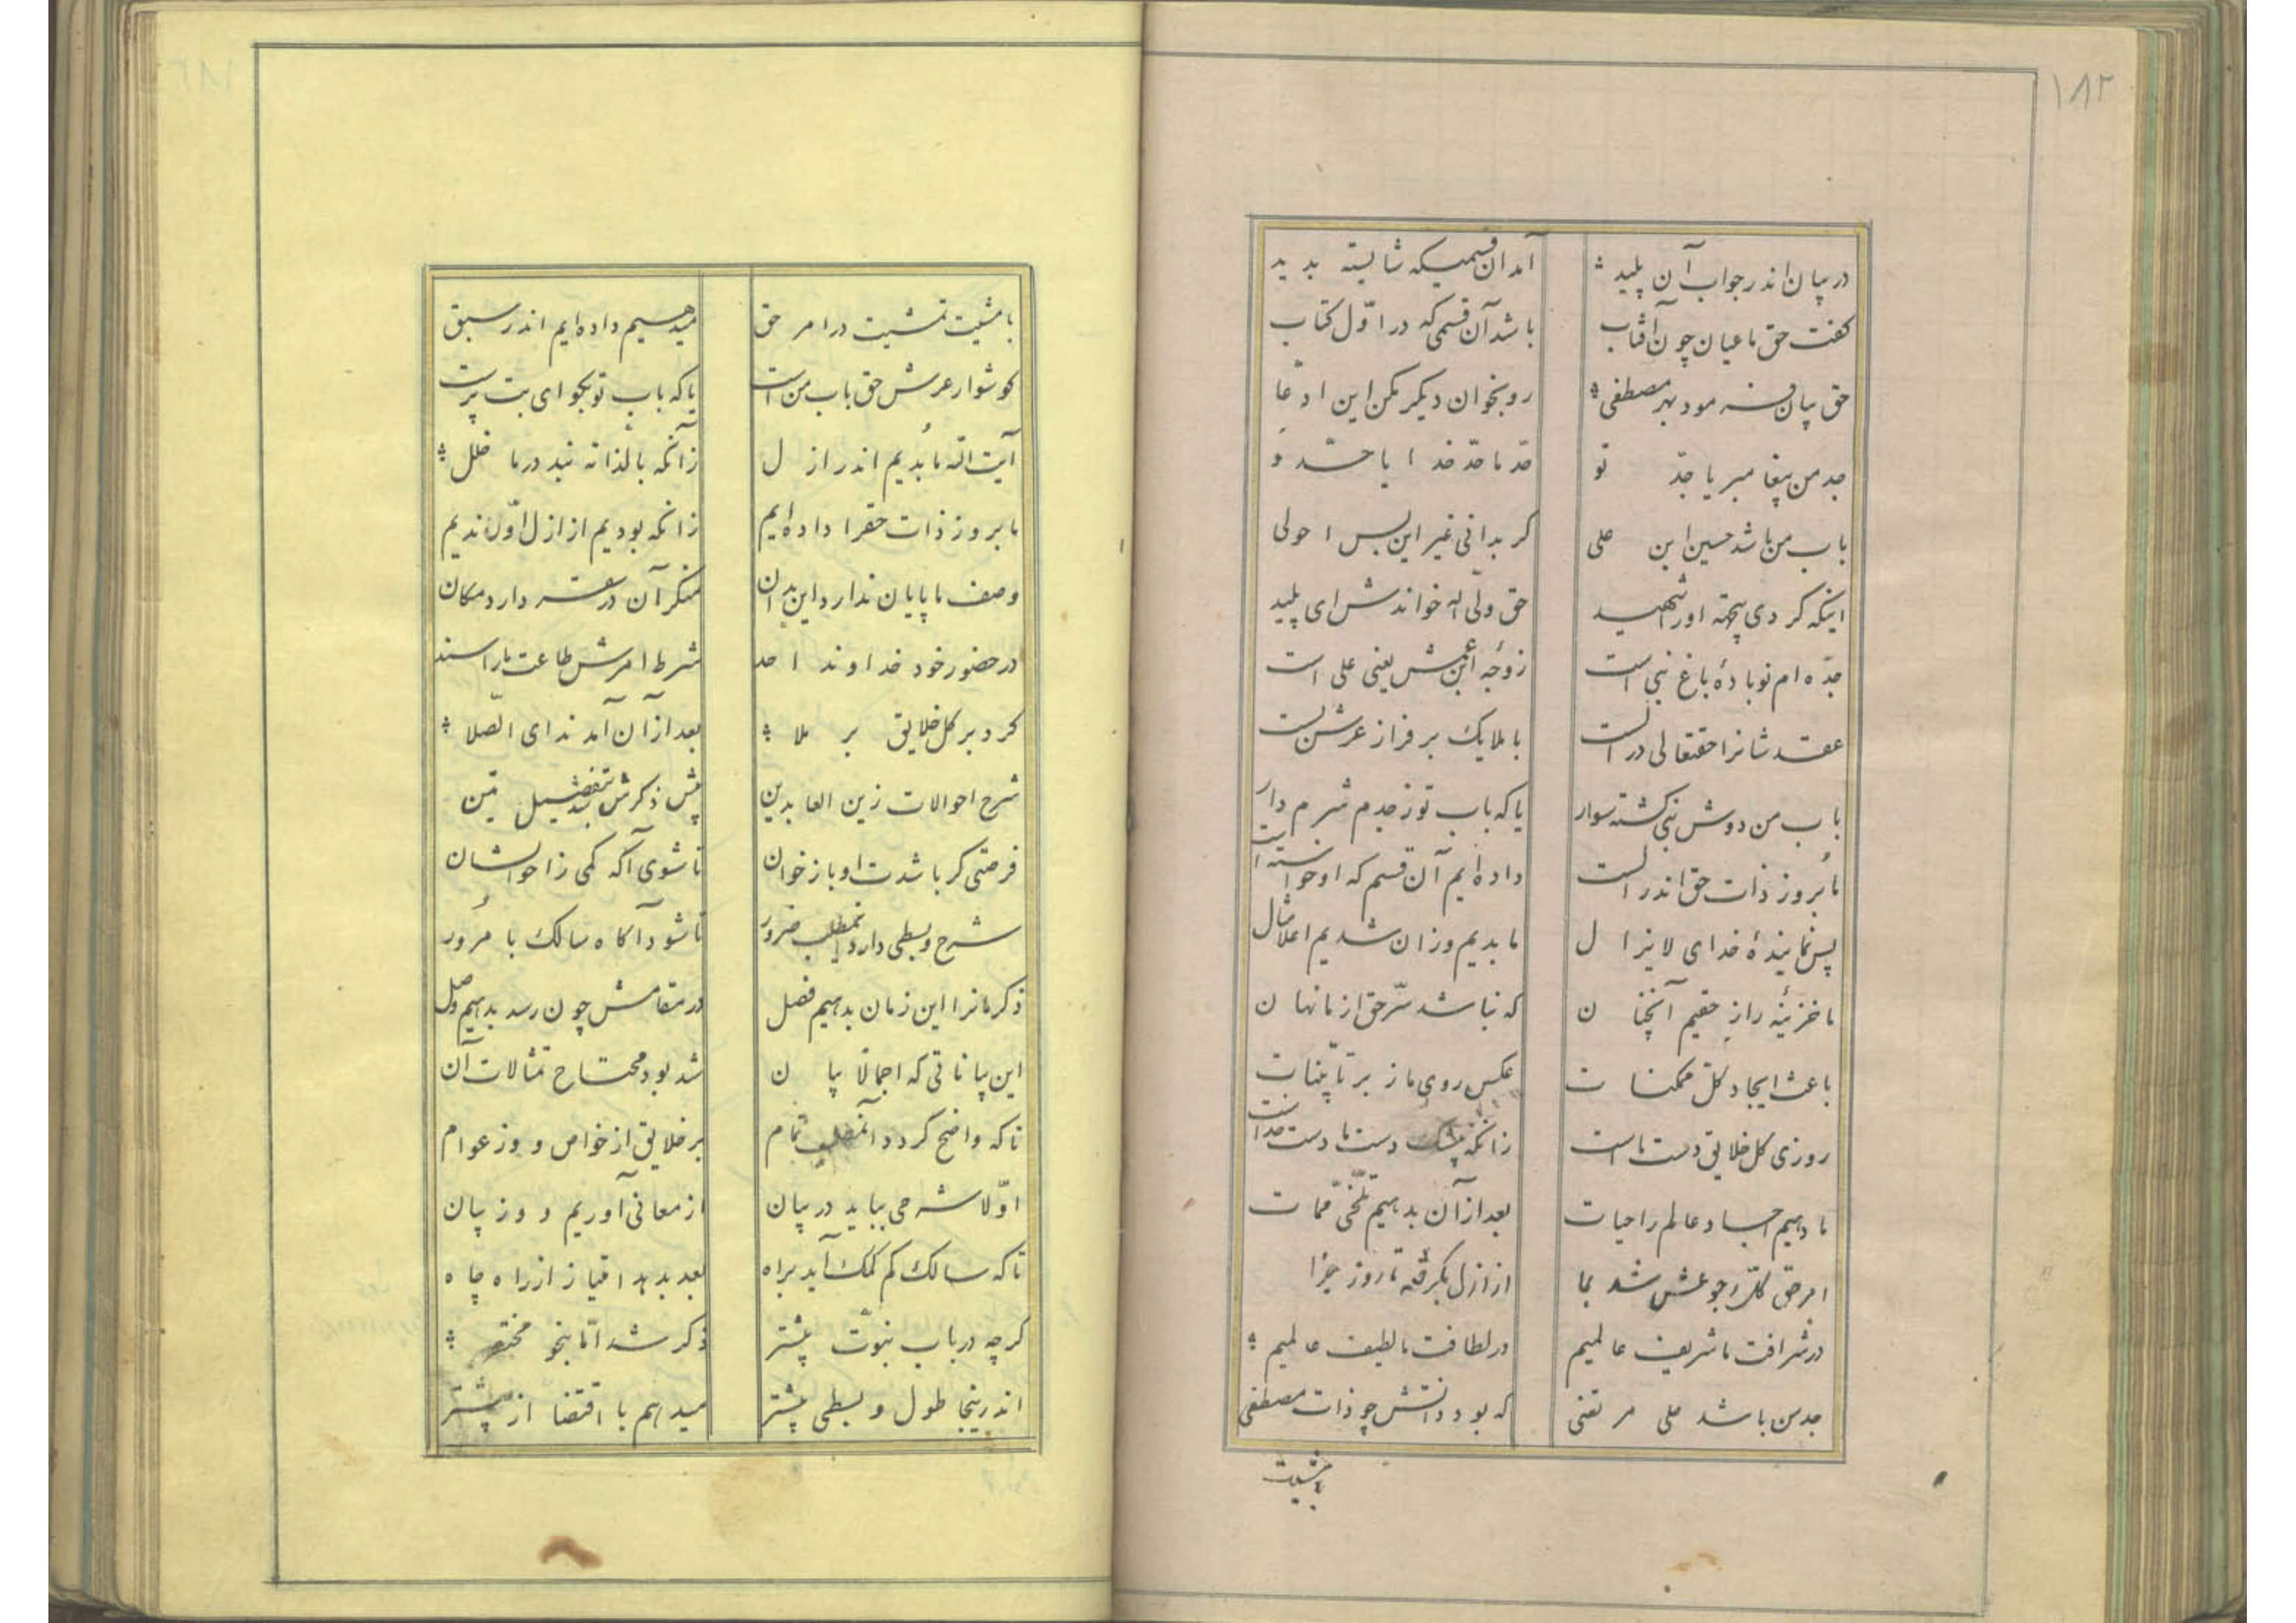 ۱۸۲
در بیان اندر جواب آن پلید آمد آن قسمیکه شایسته بدید
گفت حق ما عیان چون آفتاب باشد آن قسمی که در اوّل کتاب
حق بیان فرمود بهر مصطفی رو بخوان دیگر مکن این ادّعا
جد من پیغامبر یا جدّ تو جدّ ما جدّ خدا یا جدّ و
باب من باشد حسین ابن علی گر بدانی غیر این بس احولی
اینکه کردی پنجۀ او را شهید حق ولی اله خواندش ای پلید
جدّه ام نوبادۀ باغ نبی است زوجۀ ابن عمش یعنی علی است
عقد شانرا حقتعالی در الست با ملایک بر فراز عرش بست
باب من دوش نبی گشته سوار یا که باب تو ز جدم شرم دار
ما بروز ذات حق اندر الست داده ایم آن قسم که او خواسته است
پس نمایندۀ خدای لا یزال ما بدیم و زان شدیم اعلا مثال
ما خزینۀ راز حقیم آنچنان که نباشد سرّ حق از ما نهان
باعث ایجاد کل ممکنات عکس روی ما ز بر تا بینات
روزی کل خلایق دست ماست زانکه بیشک دست ما دست خداست
ما دهیم اجساد عالم را حیات بعد از آن بدهیم تلخی ممات
امر حق کل رجوعش شد بما از ازل بگرفته تا روز جزا
در شرافت ما شریف عالمیم در لطافت ما لطیف عالمیم
جد من باشد علی مرتضی که بود ذاتش چو ذات مصطفی
بامشیت
بامشیت تمشیت در امر حق میدهیم داده ایم اندر سبق
گوشوار عرش حق باب من است یا که باب تو بگو ای بت پرست
آیت اله ما بُدیم اندر ازل زآنکه بالذاته نبد در ما خلل
ما بروز ذات حقرا داده ایم زانکه بودیم از ازل اوّل ندیم
وصف ما پایان ندارد این بدان منکر آن در سقر دارد مکان
در حضور خود خداوند احد شرط امرش طاعت ما را سند
کرد بر کل خلایق بر ملا بعد از آن آمد ندای الصّلا
شرح احوالات زین العابدین پیش ذکرش شد بتفضیل متین
فرصتی گر باشدت او باز خوان تا شوی آگه کمی زاحوالشان
شرح و بسطی دارد اینمطلب ضرور تا شود آگاه سالک با مُرور
ذکر مانرا این زمان بدهیم فصل در مقامش چون رسد بدهیم وصل
این بیاناتی که اجمالاً بیان شد بود محتاج تمثالات آن
تا که واضح گردد آنمطلب تمام بر خلایق از خواص و وز عوام
اوّلا شرحی بباید در بیان از معانی آوریم و وز بیان
تا که سالک کم کمک آید براه بعد بدهد امتیاز از راه چاه
گرچه در باب نبوّت بیشتر ذکر شد امّا بنحو مختصر
اندرینجا طول و بسطی بیشتر میدهیم با اقتضا از پیشتر